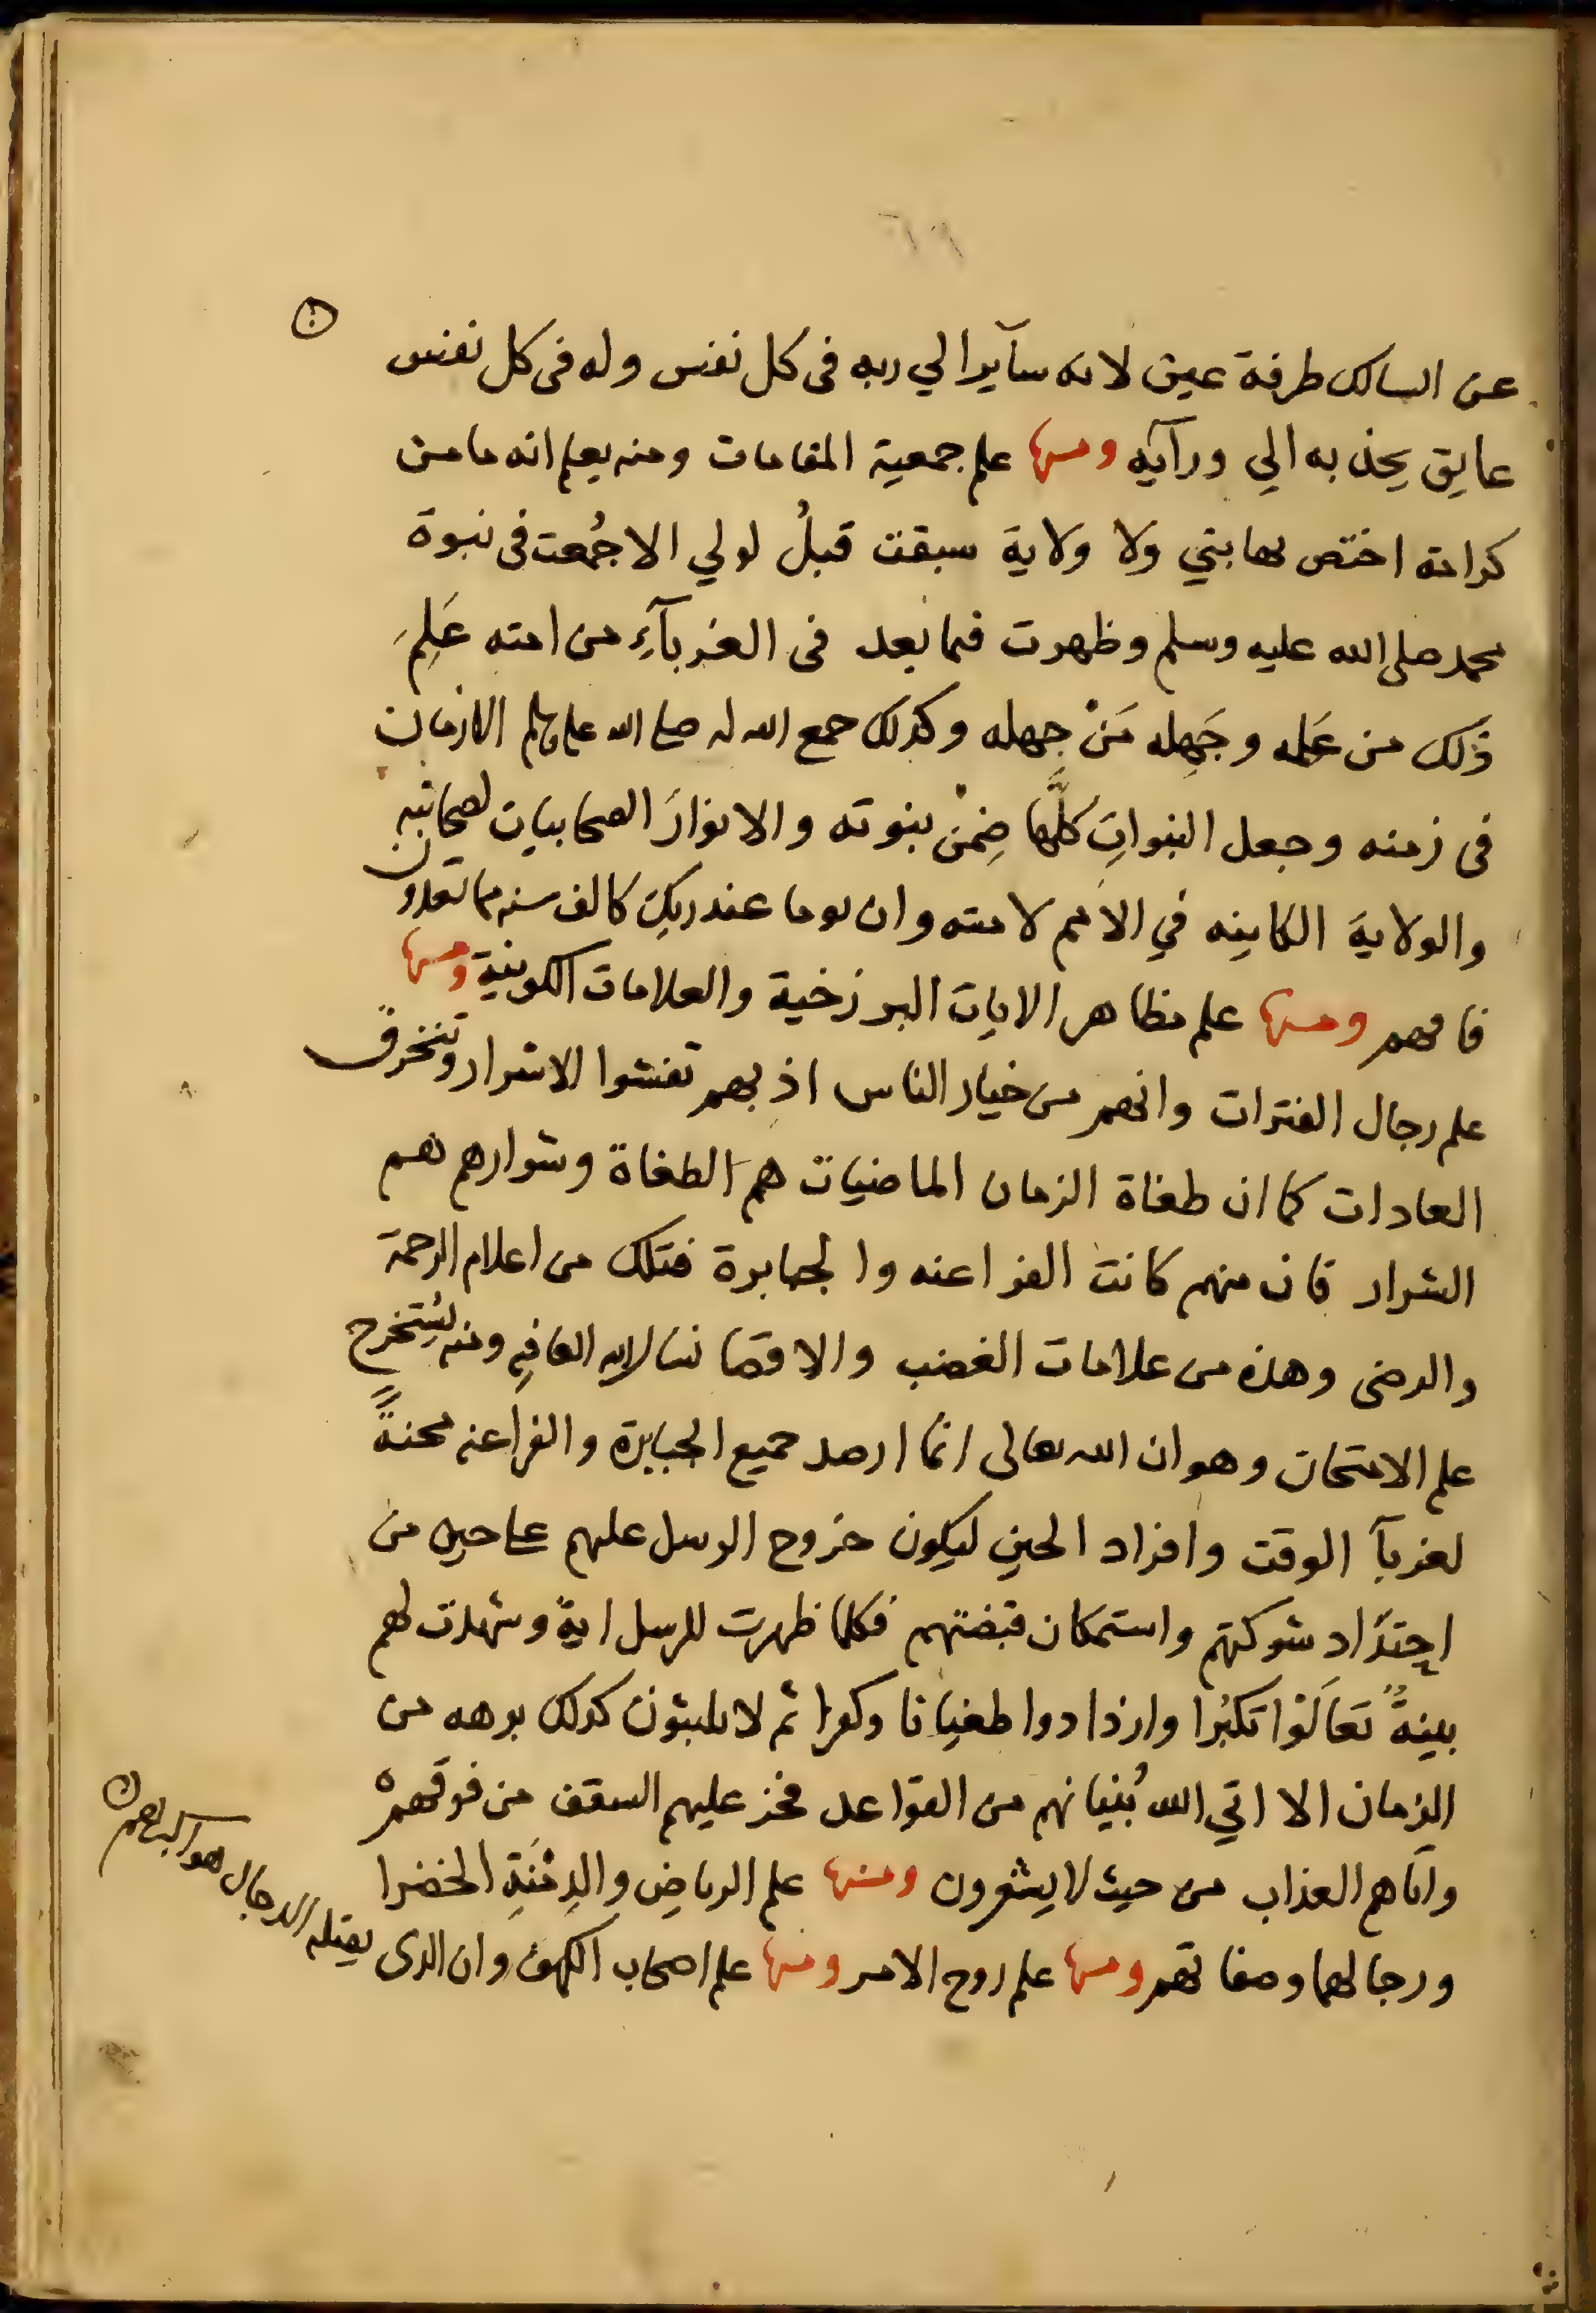 عن السالك طرفة عين لانه سآيرا الي ربه فى كل نفس وله فى كل نفس
عايق يجذبه الي ورآيه ومنها علم جمعية المقامات ومنه يعلم انه ما من
كرامة اختص بها بني ولا ولاية سبقت قبلُ لولي الا جُمعت فى نبوة
محمد صلى الله عليه وسلم وظهرت فيما بعد فى الغربآءِ من امته عَلِمَ
ذلك من عَلمه وجَهِله مَنْ جهله وكذلك جمع الله له صلى الله عليه وسلم الازمان
فى زمنه وجعل النبواتِ كلَّها ضِمْنَ بنوته والانوارَ الصحابيات لصحابته
والولاية الكاينه في الامم لامته وان يوما عند ربك كالف سنه مما تعدون
فافهم ومنها علم مظاهر الايات البرزخية والعلامات الكونية ومنها
علم رجال الفترات وانهم من خيار الناس اذ بهم تفشوا الاسرار وتنخرق
العادات كما ان طغاة الزمان الماضيات هم الطغاة وشوارهم هم
الشرار فان منهم كانت الفراعنه والجبابرة فتلك من اعلام الرحمة
والرضى وهذه من علامات الغضب والاقصا نسال الله العافيه ومنه يُستخرج
علم الامتحان وهو ان الله تعالى انما ارصد جميع الجبابرة والفراعنه محنةً
لغربآ الوقت وافراد الحين ليكون خروج الرسل عليهم على حين من
احتداد شوكتهم واستمكان قبضتهم فكلما ظهرت للرسل اية وشهدت لهم
بينةً تَعَالَوْا تكبُرا وازدادوا طغيانا وكفرا ثم لا يلبثون كذلك برهه من
الزمان الا اتي الله بُنيانهم من القواعد فخر عليهم السقف من فوقهم
واتاهم العذاب من حيث لا يشعرون ومنها علم الرياض والدِمْنَةِ الخضرا
ورجالهما وصفاتهم ومنها علم روح الامر ومنها علم اصحاب الكهف وان الذى يقتله الدجال هو